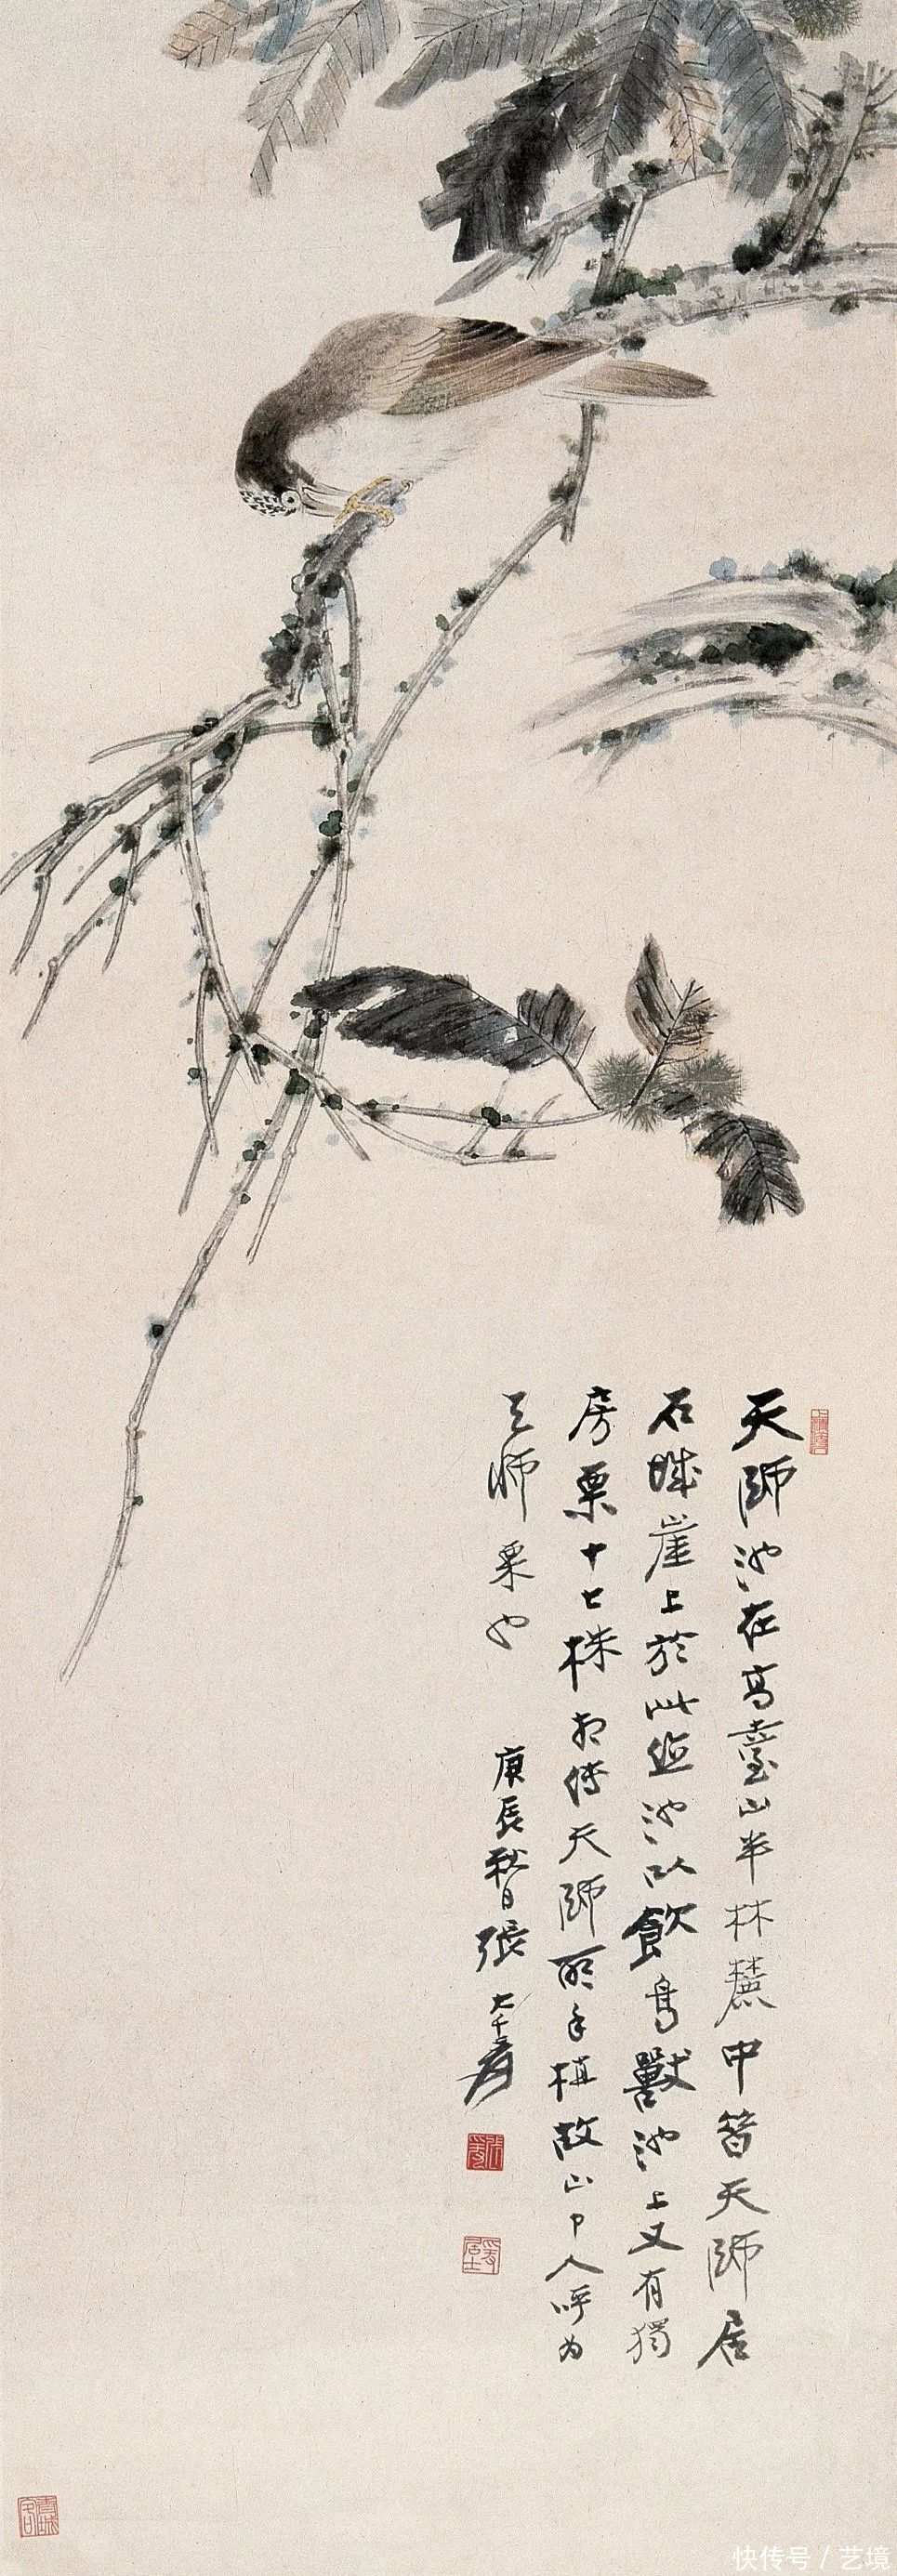 天師池在高臺山半林麓中昔天師居
石城崖上於此造池以飲鳥獸池上又有獨
房栗十七株相傳天師所手植故山中人呼為
天師栗也
庚辰秋日張大千爰
張爰
青城客
快传号 / 艺境